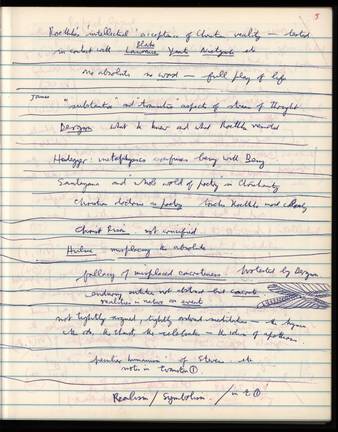 3
Roethke's intellectual acceptance of Christian reality — tested
in contact with Blake Lawrence Yeats Nietzsche etc
no absolute no word — full play of life
James
"substantive" and "transitive" aspects of stream of thought
Bergson what he knew and what Roethke
Heidegger: metaphysics confuses being with Being
Santayana and "whole world of poetry" in Christianity
Christian doctrine as poetry touches Roethke most closely
Christ Risen not crucified
Hulme misplacing the absolute
fallacy of misplaced concreteness by Bergson
enduring entities not abstract but concrete
realities in nature an event
not tightly argued, tightly ordered meditations — the hymn
the ode, the chant, the celebration — the of
'peculiar humanism' of Stevens etc
note in ①
Realism / Symbolism / in ①